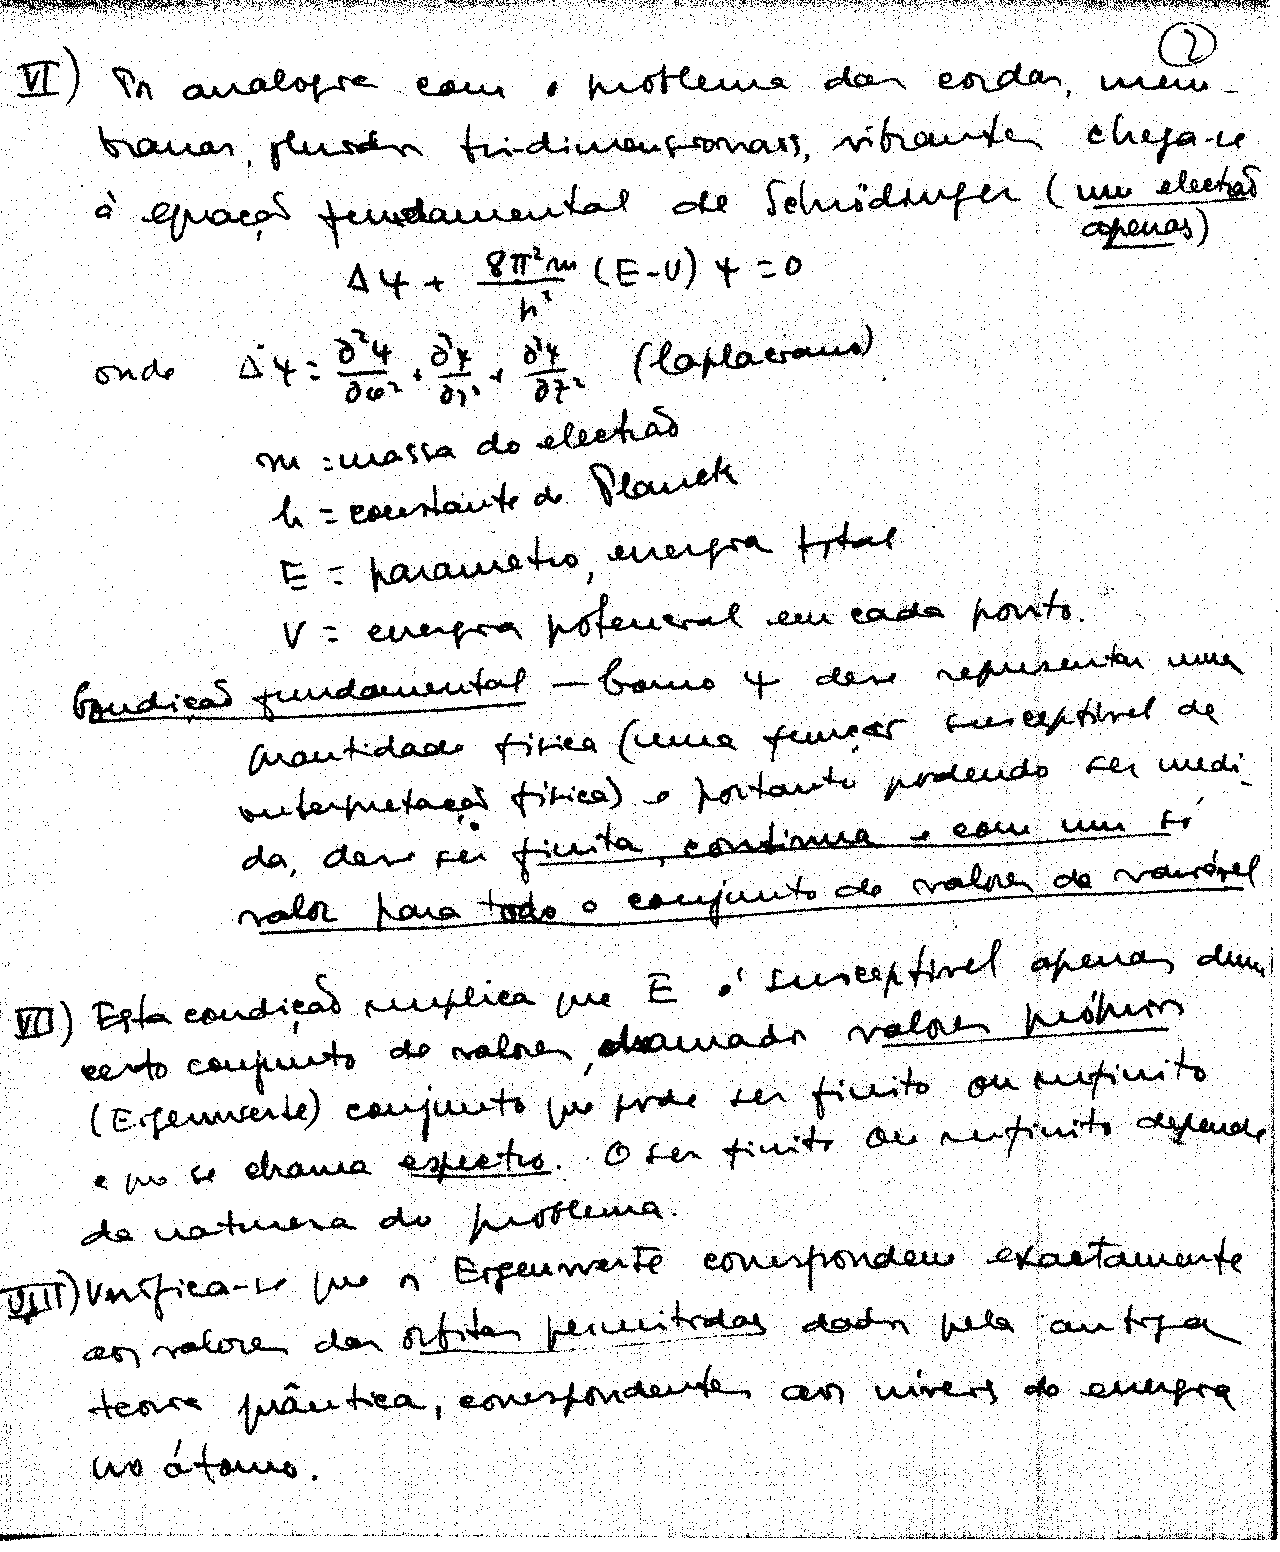 2
VI) Por analogia com o problema das cordas, mem-
branas, fluidos tri-dimensionais, vibrantes chega-se
à equação fundamental de Schrödinger (um electrão
apenas)
Δψ + 8π²m/h² (E-V) ψ = 0
onde Δψ = ∂²ψ/∂x² + ∂²ψ/∂y² + ∂²ψ/∂z² (laplaciano)
m = massa do electrão
h = constante de Planck
E = parametro, energia total
V = energia potencial em cada ponto.
Condição fundamental — Como ψ deve representar uma
quantidade física (uma função susceptível de
interpretação física) e portanto podendo ser medi-
da, deve ser finita, contínua e com um só
valor para todo o conjunto de valores da variável
VII) Esta condição implica que E é susceptível apenas dum
certo conjunto de valores, chamados valores próprios
(Eigenwerte) conjunto que pode ser finito ou infinito
e que se chama espectro. O ser finito ou infinito depende
da natureza do problema.
VIII) Verifica-se que os Eigenwerte correspondem exactamente
aos valores das órbitas permitidas dados pela antiga
teoria quântica, correspondentes aos níveis de energia
no átomo.